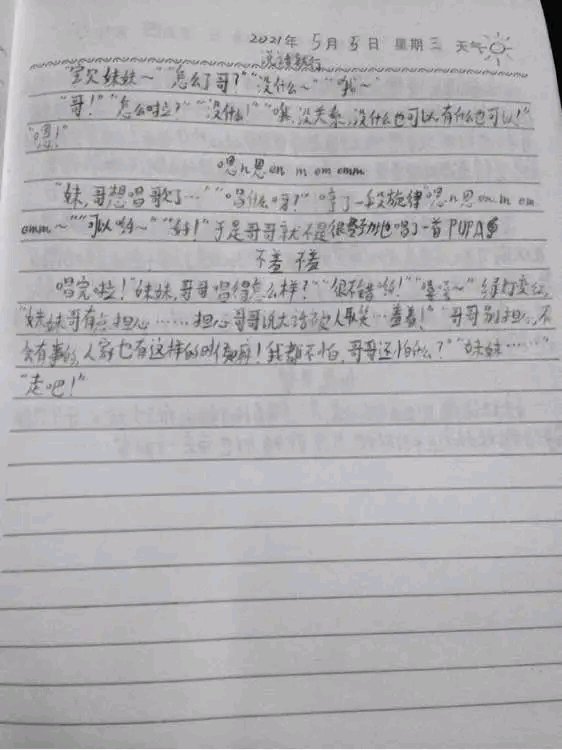 2021年 5月 5日 星期三 天气
"宝贝妹妹~""怎么了哥?""没什么~""哦~"
"哥!""怎么啦?""没什么!""哦,没关系,没什么也可以,有什么也可以!"
"嗯!"
嗯n恩en m em emm
"妹,哥想唱歌了…""唱什么呀?"哼了一段旋律"嗯n恩en m em
emm~""可以哟~""好!"于是哥哥就不是很费力地唱了一首PUPA
不羞 不羞
唱完啦!"妹妹,哥哥唱得怎么样?""很不错哟!""嘿嘿~"绿灯变红,
"妹妹哥有点担心……担心哥哥说大话被人取笑…羞羞!""哥哥别担心,不
会有事的,人家也有这样的时候嘛!我都不怕,哥哥还怕什么?""妹妹……"
"走吧!"